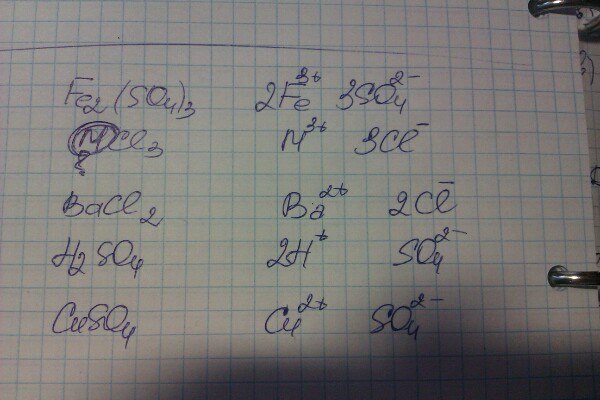 Fe₂(SO₄)₃ 2Fe³⁺ 3SO₄²⁻
MCl₃ M³⁺ 3Cl⁻
?
BaCl₂ Ba²⁺ 2Cl⁻
H₂SO₄ 2H⁺ SO₄²⁻
CuSO₄ Cu²⁺ SO₄²⁻